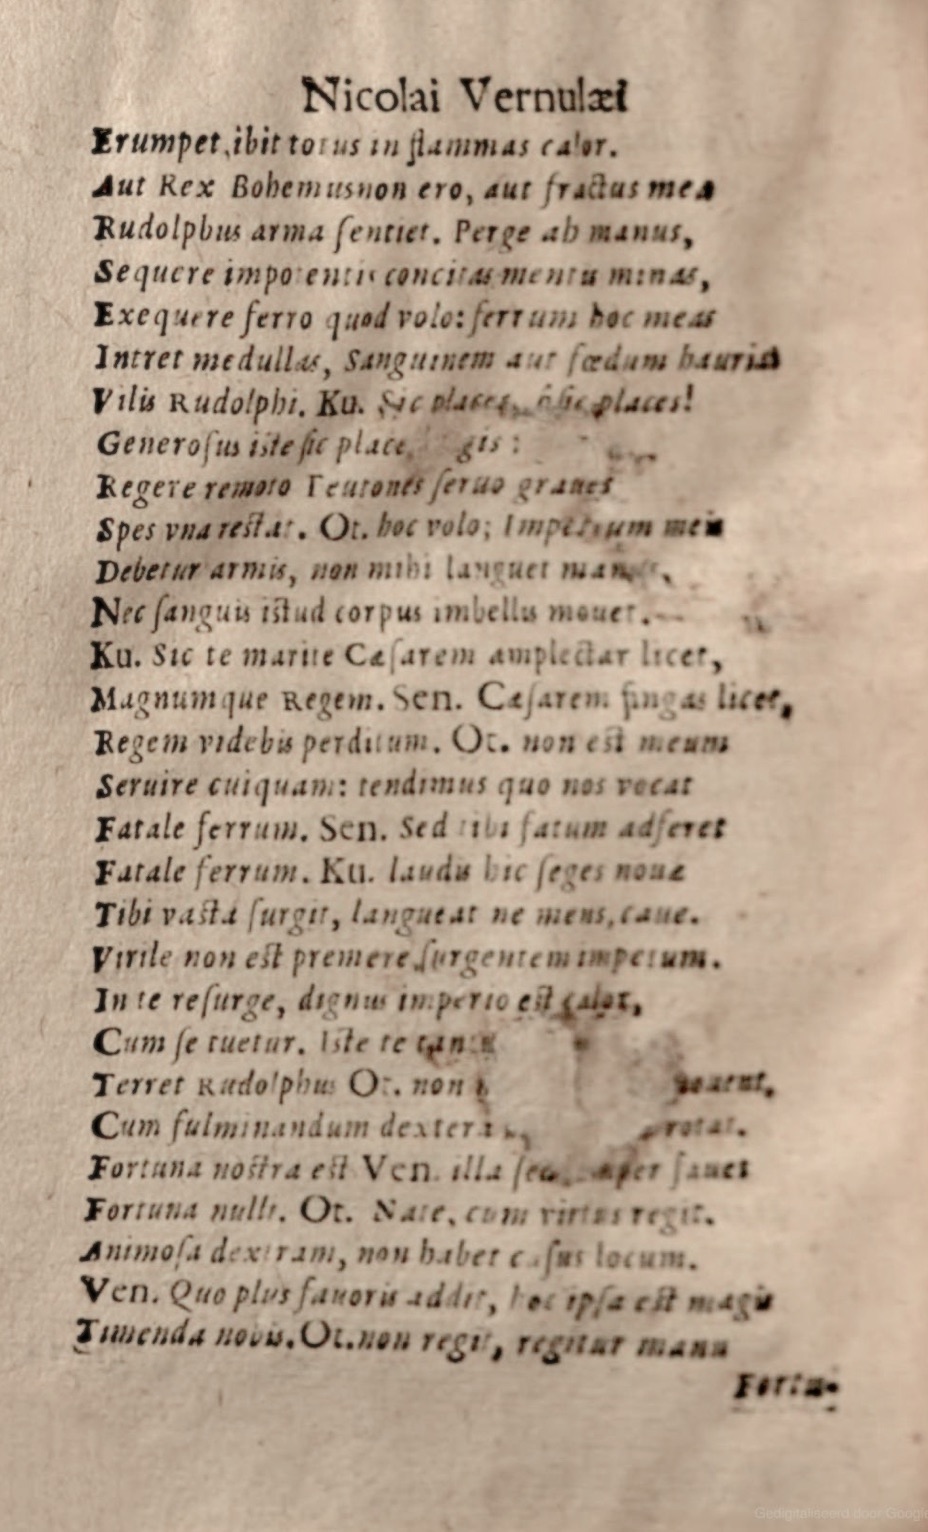 Nicolai Vernulæi
Erumpet, ibit totus in flammas calor.
Aut Rex Bohemus non ero, aut fractus mea
Rudolphus arma ſentiet. Perge ah manus,
Sequere impotentis concitas mentis minas,
Exequere ferro quod volo: ferrum hoc meas
Intret medullas, Sanguinem aut fœdum hauriat
Vilis Rudolphi. Ku. Sic places, ô ſic places!
Generoſus iste ſic place
Regere remoto Teutones ſeruo graues
Spes vna restat. Ot. hoc volo; Imperium meis
Debetur armis, non mihi languet manus,
Nec ſanguis iſtud corpus imbellis mouet.
Ku. Sic te marite Cæſarem amplectar licet,
Magnumque Regem. Sen. Cæſarem fingas licet,
Regem videbis perditum. Ot. non eſt meum
Seruire cuiquam: tendimus quo nos vocat
Fatale ferrum. Sen. Sed tibi fatum adferet
Fatale ferrum. Ku. laudis hic ſeges nouæ
Tibi vaſta ſurgit, langueat ne mens, caue.
Virile non eſt premere ſurgentem impetum.
In te reſurge, dignus imperio eſt calor,
Cum ſe tuetur. Iſte te
Terret Rudolphus Ot. non
Cum fulminandum dextera rotat.
Fortuna noſtra eſt Ven. illa fauet
Fortuna nulli. Ot. Nate, cum virtus regit.
Animoſa dextram, non habet caſus locum.
Ven. Quo plus fauoris addit, hoc ipſa eſt magis
Timenda nobis. Ot. non regit, regitur manu
Fortu-
Gedigitaliseerd door Google